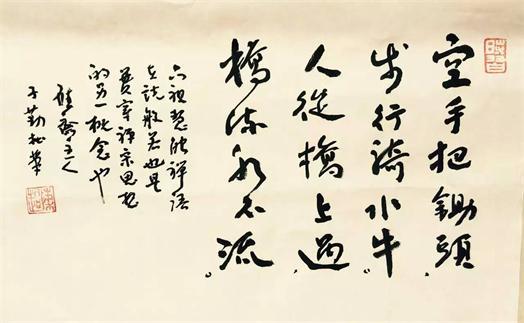 空手把鋤頭
步行騎水牛
人從橋上過
橋流水不流
六祖慧能禪語
在說般若也是
禪宗思想
的另一概念也
主人
子勤拙筆